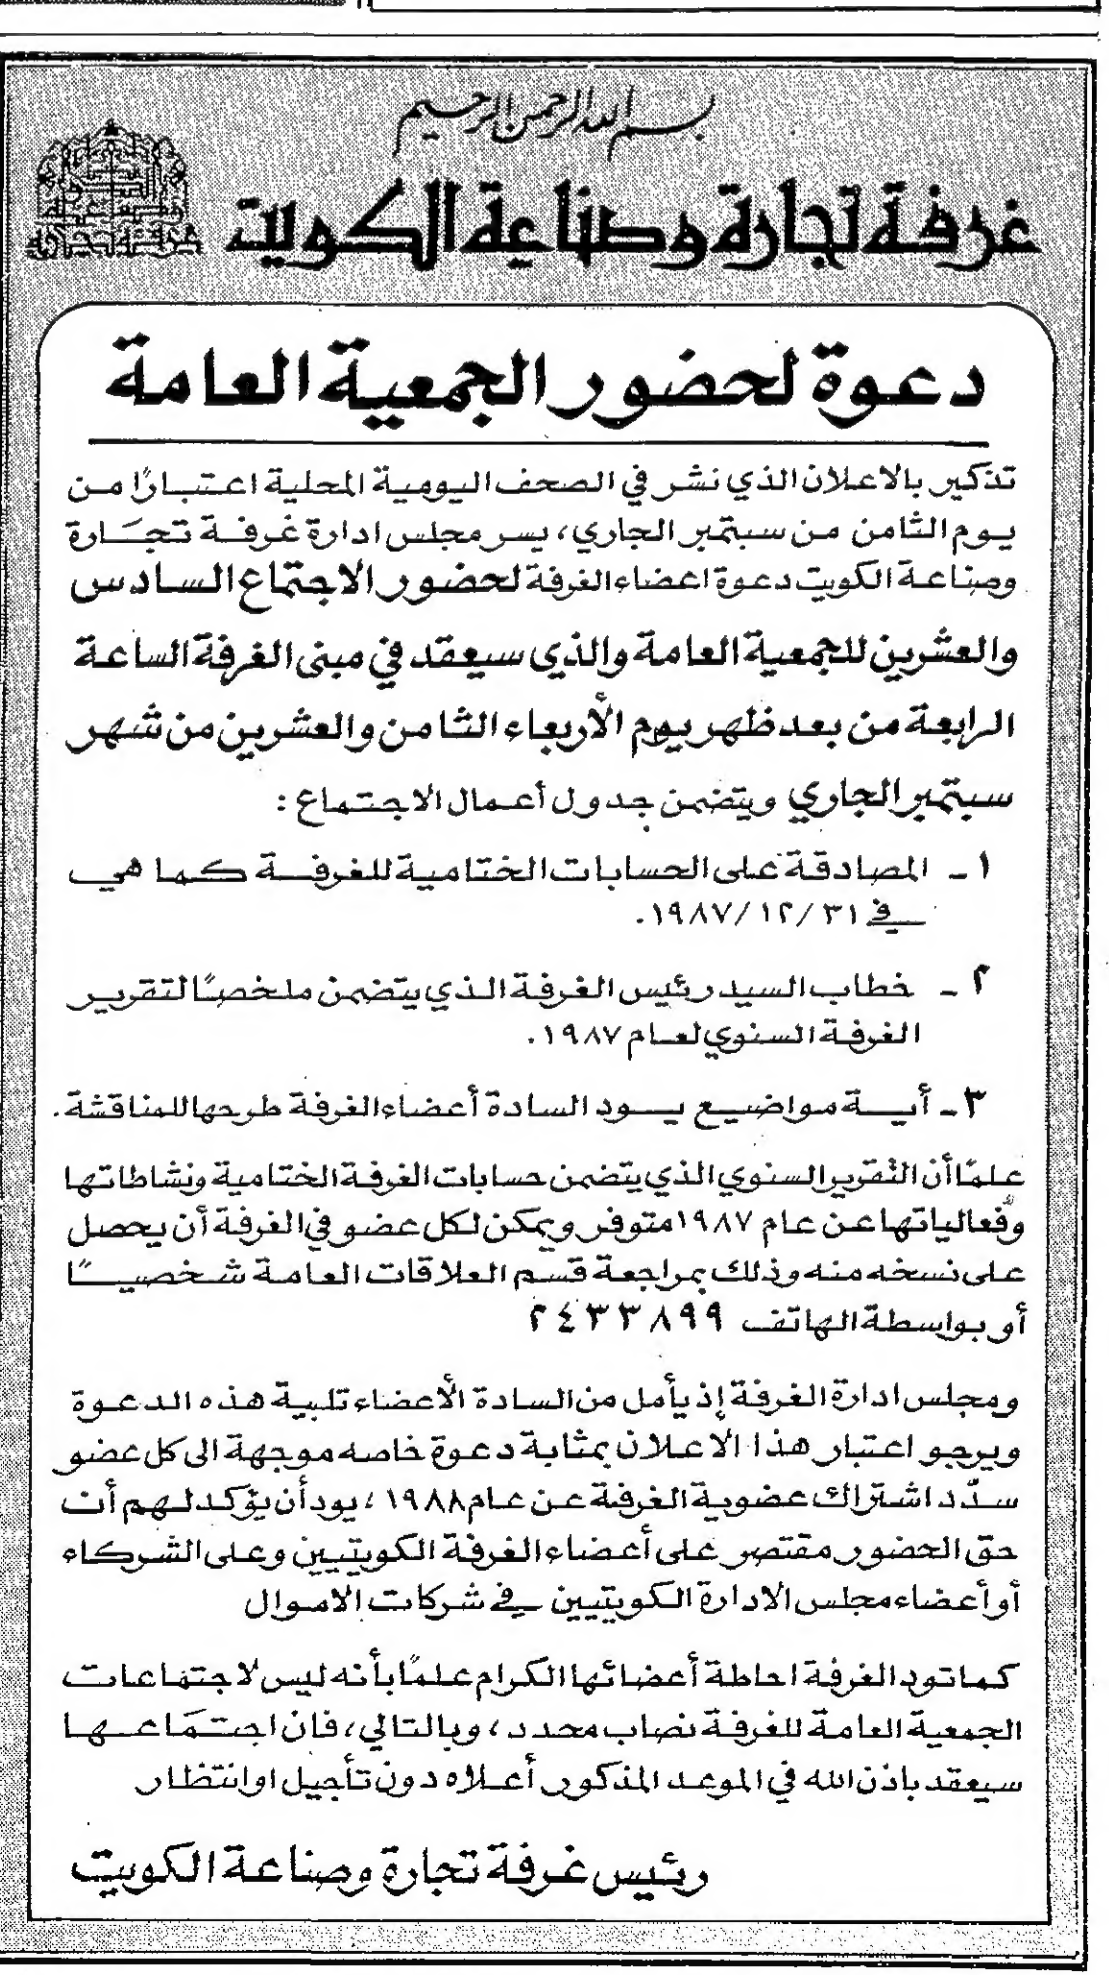 بسم الله الرحمن الرحيم
غرفة تجارة وصناعة الكويت
دعوة لحضور الجمعية العامة
تذكير بالاعلان الذي نشر في الصحف اليومية المحلية اعتبارًا من
يوم الثامن من سبتمبر الجاري، يسر مجلس ادارة غرفة تجارة
وصناعة الكويت دعوة اعضاء الغرفة لحضور الاجتماع السادس
والعشرين للجمعية العامة والذي سيعقد في مبنى الغرفة الساعة
الرابعة من بعد ظهر يوم الأربعاء الثامن والعشرين من شهر
سبتمبر الجاري ويتضمن جدول أعمال الاجتماع :
١ ـ المصادقة على الحسابات الختامية للغرفة كما هي
في ٣١/ ١٢/ ١٩٨٧.
٢ ـ خطاب السيد رئيس الغرفة الذي يتضمن ملخصًا لتقرير
الغرفة السنوي لعام ١٩٨٧.
٣ ـ أية مواضيع يود السادة أعضاء الغرفة طرحها للمناقشة.
علمًا أن التقرير السنوي الذي يتضمن حسابات الغرفة الختامية ونشاطاتها
وفعالياتها عن عام ١٩٨٧ متوفر ويمكن لكل عضو في الغرفة أن يحصل
على نسخه منه وذلك بمراجعة قسم العلاقات العامة شخصيًا
أو بواسطة الهاتف ٢٤٣٣٨٩٩
ومجلس ادارة الغرفة إذ يأمل من السادة الأعضاء تلبية هذه الدعوة
ويرجو اعتبار هذا الاعلان بمثابة دعوة خاصه موجهة الى كل عضو
سدّد اشتراك عضوية الغرفة عن عام ١٩٨٨، يود أن يؤكد لهم أن
حق الحضور مقتصر على أعضاء الغرفة الكويتيين وعلى الشركاء
أو أعضاء مجلس الادارة الكويتيين في شركات الاموال
كما تود الغرفة احاطة أعضائها الكرام علمًا بأنه ليس لاجتماعات
الجمعية العامة للغرفة نصاب محدد، وبالتالي، فان اجتماعها
سيعقد باذن الله في الموعد المذكور أعلاه دون تأجيل او انتظار
رئيس غرفة تجارة وصناعة الكويت